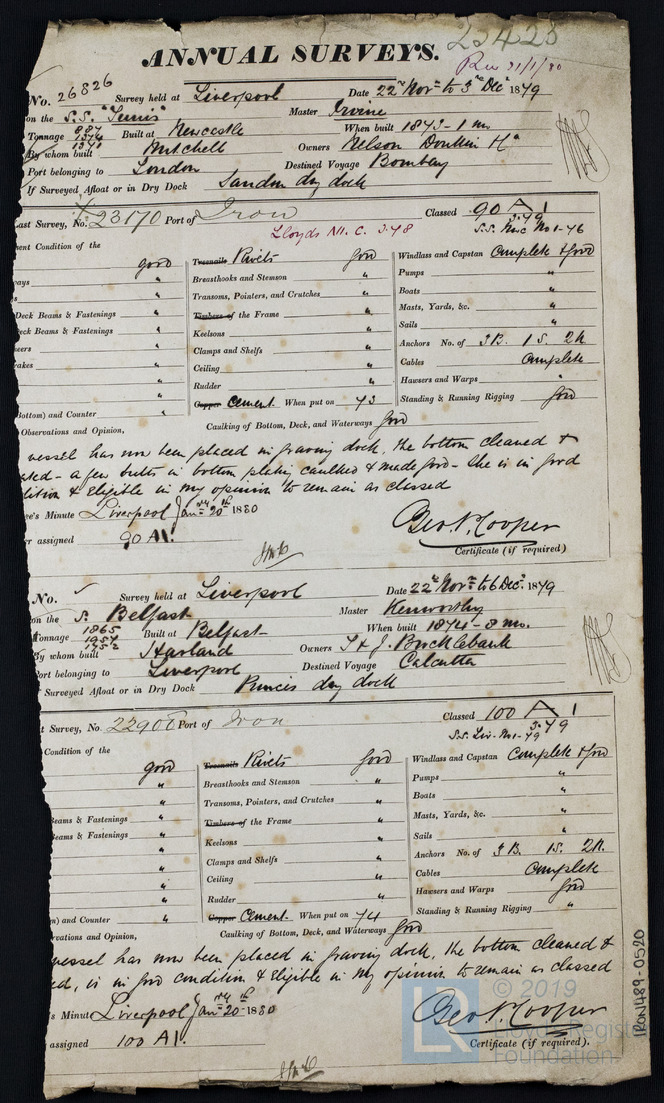 25425
ANNUAL SURVEYS.
Rec 21/1/80
No. 26826 Survey held at Liverpool Date 22nd Novr to 3rd Decr 1879
on the S.S. Master Irvine
Tonnage 887 1346 1371 Built at Newcastle When built 1873 - 1 m.
By whom built Mitchell Owners Nelson Donkin &
Port belonging to London Destined Voyage Bombay
If Surveyed Afloat or in Dry Dock Sandon dry dock
ast Survey, No. 23170 Port of Iron Classed 90 A 1
3.79
Lloyds M. C. 3.78 S.S. Nwc No 1-76
ent Condition of the
good Treenails Rivets good Windlass and Capstan Complete & good
ways " Breasthooks and Stemson " Pumps "
s " Transoms, Pointers, and Crutches " Boats "
Deck Beams & Fastenings " Timbers of the Frame " Masts, Yards, &c. "
eck Beams & Fastenings " Keelsons " Sails "
" Clamps and Shelfs " Anchors No. of 3B. 1S. 2K
rakes " Ceiling " Cables Complete
" Rudder " Hawsers and Warps "
" Copper Cement. When put on 73 Standing & Running Rigging good
Bottom) and Counter " Caulking of Bottom, Deck, and Waterways good
Observations and Opinion,
vessel has now been placed in graving dock, the bottom cleaned &
ated - a few butts in bottom plating caulked & made good - She is in good
dition & Eligible in my opinion to remain as classed
ee's Minute Liverpool Jany 20th 1880
Geo. N. Cooper
r assigned 90 A1.
Certificate (if required)
No. Survey held at Liverpool Date 22nd Novr to 6 Decr 1879
on the S. Belfast Master Kenworthy
Tonnage 1865 1957 Built at Belfast When built 1874 - 8 mo.
By whom built Harland Owners T & J. Brocklebank
ort belonging to Liverpool Destined Voyage Calcutta
Surveyed Afloat or in Dry Dock Princes dry dock
t Survey, No. 22906 Port of Iron Classed 100 A 1
3.79
S.S. Liv. No 1-79
Condition of the
good Treenails Rivets good Windlass and Capstan Complete & good
" Breasthooks and Stemson " Pumps "
" Transoms, Pointers, and Crutches " Boats "
Beams & Fastenings " Timbers of the Frame " Masts, Yards, &c. "
eams & Fastenings " Keelsons " Sails "
" Clamps and Shelfs " Anchors No. of 3 B. 1S. 2K.
" Ceiling " Cables Complete
" Rudder " Hawsers and Warps good
" Copper Cement. When put on 74 Standing & Running Rigging "
n) and Counter " Caulking of Bottom, Deck, and Waterways good
rvations and Opinion,
vessel has now been placed in graving dock, the bottom cleaned &
ed, is in good condition & Eligible in my opinion to remain as classed
s Minut Liverpool Jany 20th 1880
Geo. N. Cooper
assigned 100 A1.
Certificate (if required).
© 2019
LR Lloyd's Register
Foundation
IRON1489-0520